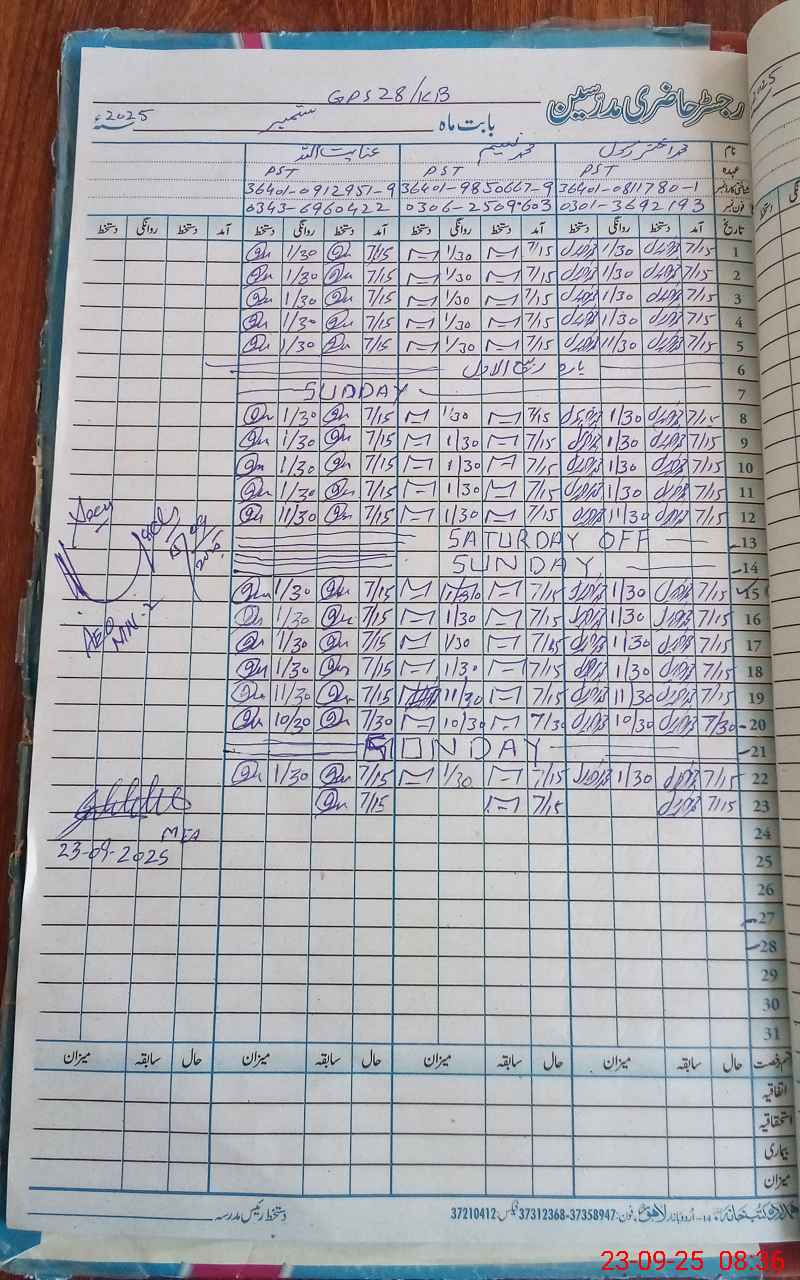 GPS 28/KB
رجسٹر حاضری مدرسین
بابت ماہ ستمبر 2025ء
نام محمد اختر رسول محمد نسیم عنایت اللہ
عہدہ PST PST PST
شناختی کارڈ نمبر 36401-0811780-1 36401-9850667-9 36401-0912951-9
فون نمبر 0301-3692193 0306-2509603 0343-6960422
تاریخ آمد دستخط روانگی دستخط آمد دستخط روانگی دستخط آمد دستخط روانگی دستخط آمد دستخط روانگی دستخط
1 7/15 1/30 7/15 1/30 7/15 1/30
2 7/15 1/30 7/15 1/30 7/15 1/30
3 7/15 1/30 7/15 1/30 7/15 1/30
4 7/15 1/30 7/15 1/30 7/15 1/30
5 7/15 11/30 7/15 1/30 7/15 1/30
6 بارہ ربیع الاول
7 SUNDAY
8 7/15 1/30 7/15 1/30 7/15 1/30
9 7/15 1/30 7/15 1/30 7/15 1/30
10 7/15 1/30 7/15 1/30 7/15 1/30
11 7/15 1/30 7/15 1/30 7/15 1/30
12 7/15 11/30 7/15 1/30 7/15 11/30
13 SATURDAY OFF
14 SUNDAY
15 7/15 1/30 7/15 7/15 1/30
16 7/15 1/30 7/15 1/30 7/15 1/30
17 7/15 1/30 7/15 1/30 7/15 1/30
18 7/15 1/30 7/15 1/30 7/15 1/30
19 7/15 11/30 7/15 11/30 7/15 11/30
20 7/30 10/30 7/30 10/30 7/30 10/30
21 SONDAY
22 7/15 1/30 7/15 1/30 7/15 1/30
23 7/15 7/15 7/15
24
25
26
27
28
29
30
31
AEO
MN-2
MEA
23-09-2025
قسم رخصت حال سابقہ میزان حال سابقہ میزان حال سابقہ میزان حال سابقہ میزان
اتفاقیہ
استحقاقیہ
بیماری
میزان
کتب خانہ 14-اردو بازار لاہور، فون: 37358947-37312368 فیکس: 37210412
دستخط رئیس مدرسہ
23-09-25 08:36